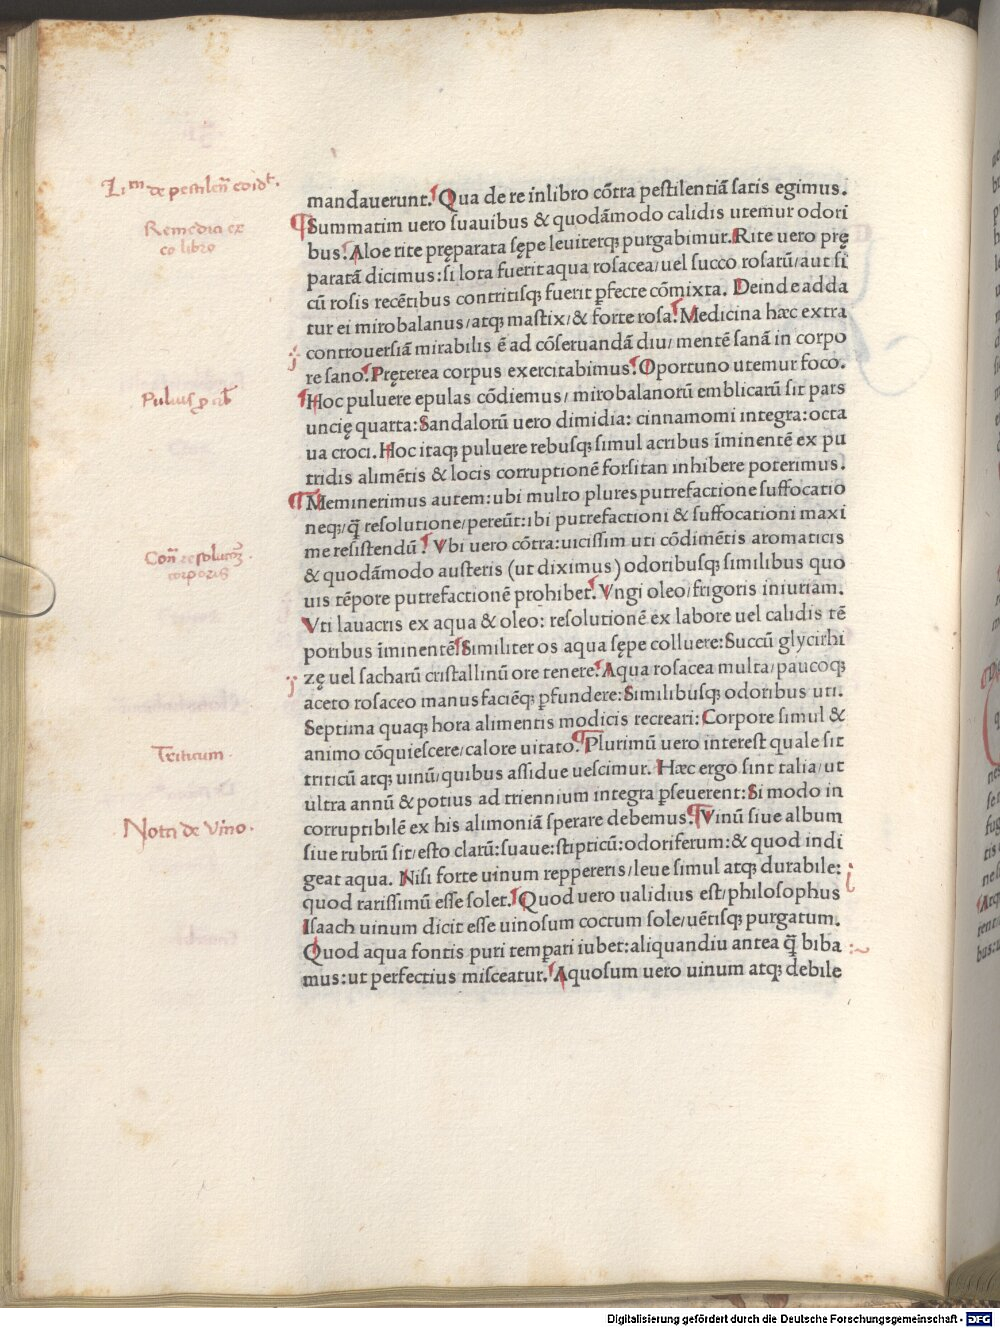 mandauerunt. Qua de re inlibro cõtra pestilentiã satis egimus.
Summatim uero suauibus & quodãmodo calidis utemur odori
bus. Aloe rite pręparata sępe leuiterq; purgabimur. Rite uero prę
paratã dicimus: si lota fuerit aqua rosacea/uel succo rosarũ/aut si
cũ rosis recẽtibus contritisq; fuerit ꝑfecte cõmixta. Deinde adda
tur ei mirobalanus/atq; mastix/& forte rosa. Medicina hæc extra
controuersiã mirabilis ẽ ad cõseruandã diu/ mentẽ sanã in corpo
re sano. Pręterea corpus exercitabimus. Oportuno utemur foco.
Hoc puluere epulas cõdiemus/ mirobalanorũ emblicarũ sit pars
uncię quarta: Sandalorũ uero dimidia: cinnamomi integra: octa
ua croci. Hoc itaq; puluere rebusq; simul acribus ĩminentẽ ex pu
tridis alimẽtis & locis corruptionẽ forsitan inhibere poterimus.
Meminerimus autem: ubi multo plures putrefactione suffocatio
neq;/q̃ resolutione/pereũt: ibi putrefactioni & suffocationi maxi
me resistendũ. Vbi uero cõtra: uicissim uti cõdimẽtis aromaticis
& quodãmodo austeris (ut diximus) odoribusq; similibus quo
uis tẽpore putrefactionẽ prohibet. Vngi oleo/frigoris iniuriam.
Vti lauacris ex aqua & oleo: resolutionẽ ex labore uel calidis tẽ
poribus ĩminentẽ Similiter os aqua sępe colluere: Succũ glycirhi
zę uel sacharũ cristallinũ ore tenere. Aqua rosacea multa/paucoq;
aceto rosaceo manus faciẽq; ꝑfundere: Similibusq; odoribus uti.
Septima quaq; hora alimentis modicis recreari: Corpore simul &
animo cõquiescere/calore uitato. Plurimũ uero interest quale sit
triticũ atq; uinũ/quibus assidue uescimur. Hæc ergo sint talia/ut
ultra annũ & potius ad triennium integra ꝑseuerent: Si modo in
corruptibilẽ ex his alimoniã sperare debemus. Vinũ siue album
siue rubrũ sit/esto clarũ: suaue: stipticũ: odoriferum: & quod indi
geat aqua. Nisi forte uinum reppereris/leue simul atq; durabile:
quod rarissimũ esse solet. Quod uero ualidius est/philosophus
Isaach uinum dicit esse uinosum coctum sole/uẽtisq; purgatum.
Quod aqua fontis puri temꝑari iubet: aliquandiu antea q̃ biba
mus: ut perfectius misceatur. Aquosum uero uinum atq; debile
Remedia ex
eo libro
Triticum.
Nota de Vino.
Digitalisierung gefördert durch die Deutsche Forschungsgemeinschaft - DFG